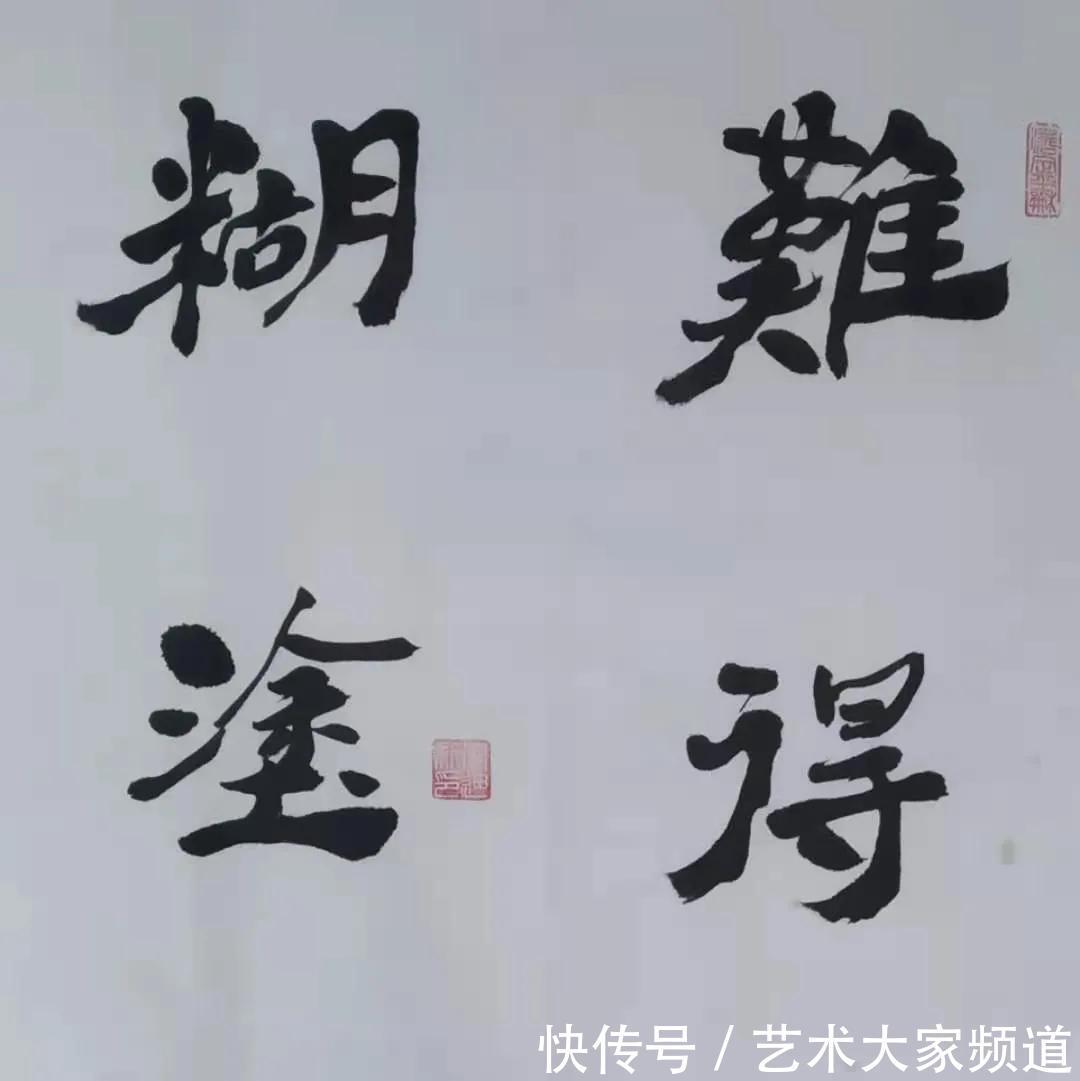 難得
糊塗
快传号 / 艺术大家频道